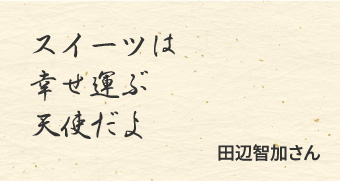 スイーツは
幸せ運ぶ
天使だよ
田辺智加さん